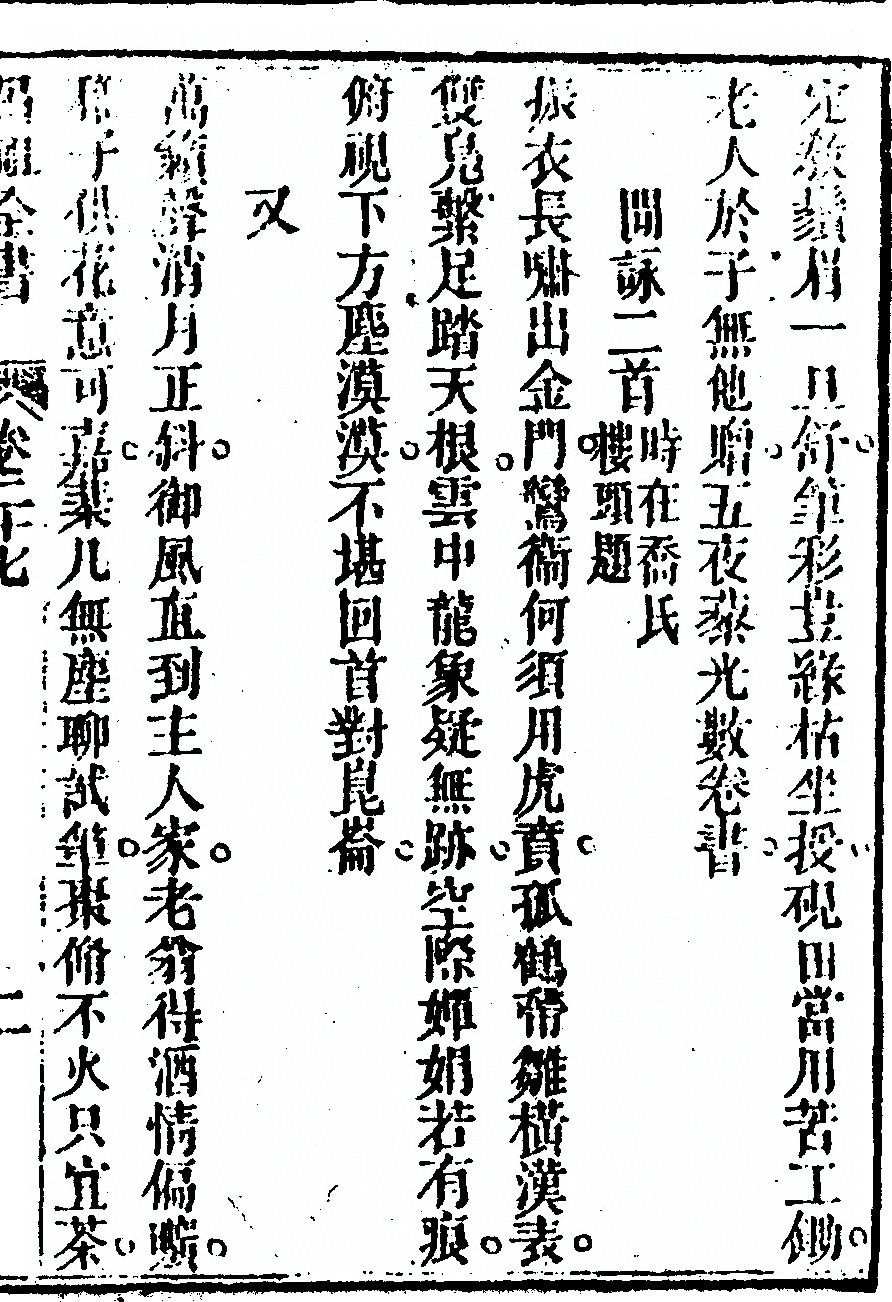 鬚眉一旦舒筆彩豈緣枯坐投硯田當用苦工鋤
老人於子無他贈五夜藜光數卷書
閒詠二首時在喬氏樓頭題
振衣長嘯出金門鸞衞何須用虎賁孤鶴帶雛橫漢表
雙鳧繫足踏天根雲中龍象疑無跡空際嬋娟若有痕
俯視下方塵漠漠不堪回首對崑崙
又
萬籟聲消月正斜御風直到主人家老翁得酒情偏曠
子俱花意可嘉棐几無塵聊試筆棗脩不火只宜茶
全書 卷二十七 二